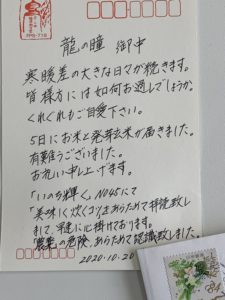 龍の瞳 御中
寒暖差の大きな日々が続きます。
皆様方には如何お過しでしょうか。
くれぐれもご自愛下さい。
5日にお米と発芽玄米が届きました。
有難うございました。
お礼い申し上げます。
「いのち輝く」No45にて
「美味しく炊くコツ」をあらためて拝読致し
まして、手元に掛けております。
「農薬」の危険、あらためて認識致しました。
2020.10.20
84